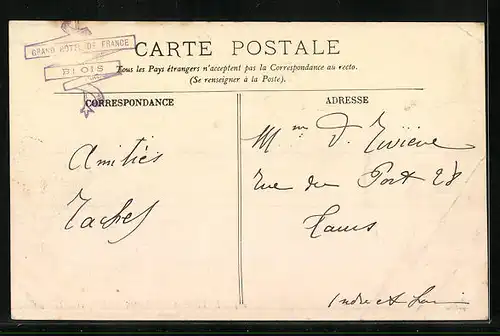 GRAND HOTEL DE FRANCE
BLOIS
CARTE POSTALE
Tous les Pays étrangers n'acceptent pas la Correspondance au recto.
(Se renseigner à la Poste).
CORRESPONDANCE
ADRESSE
Amitiés
Rue du Port 28
Indre et